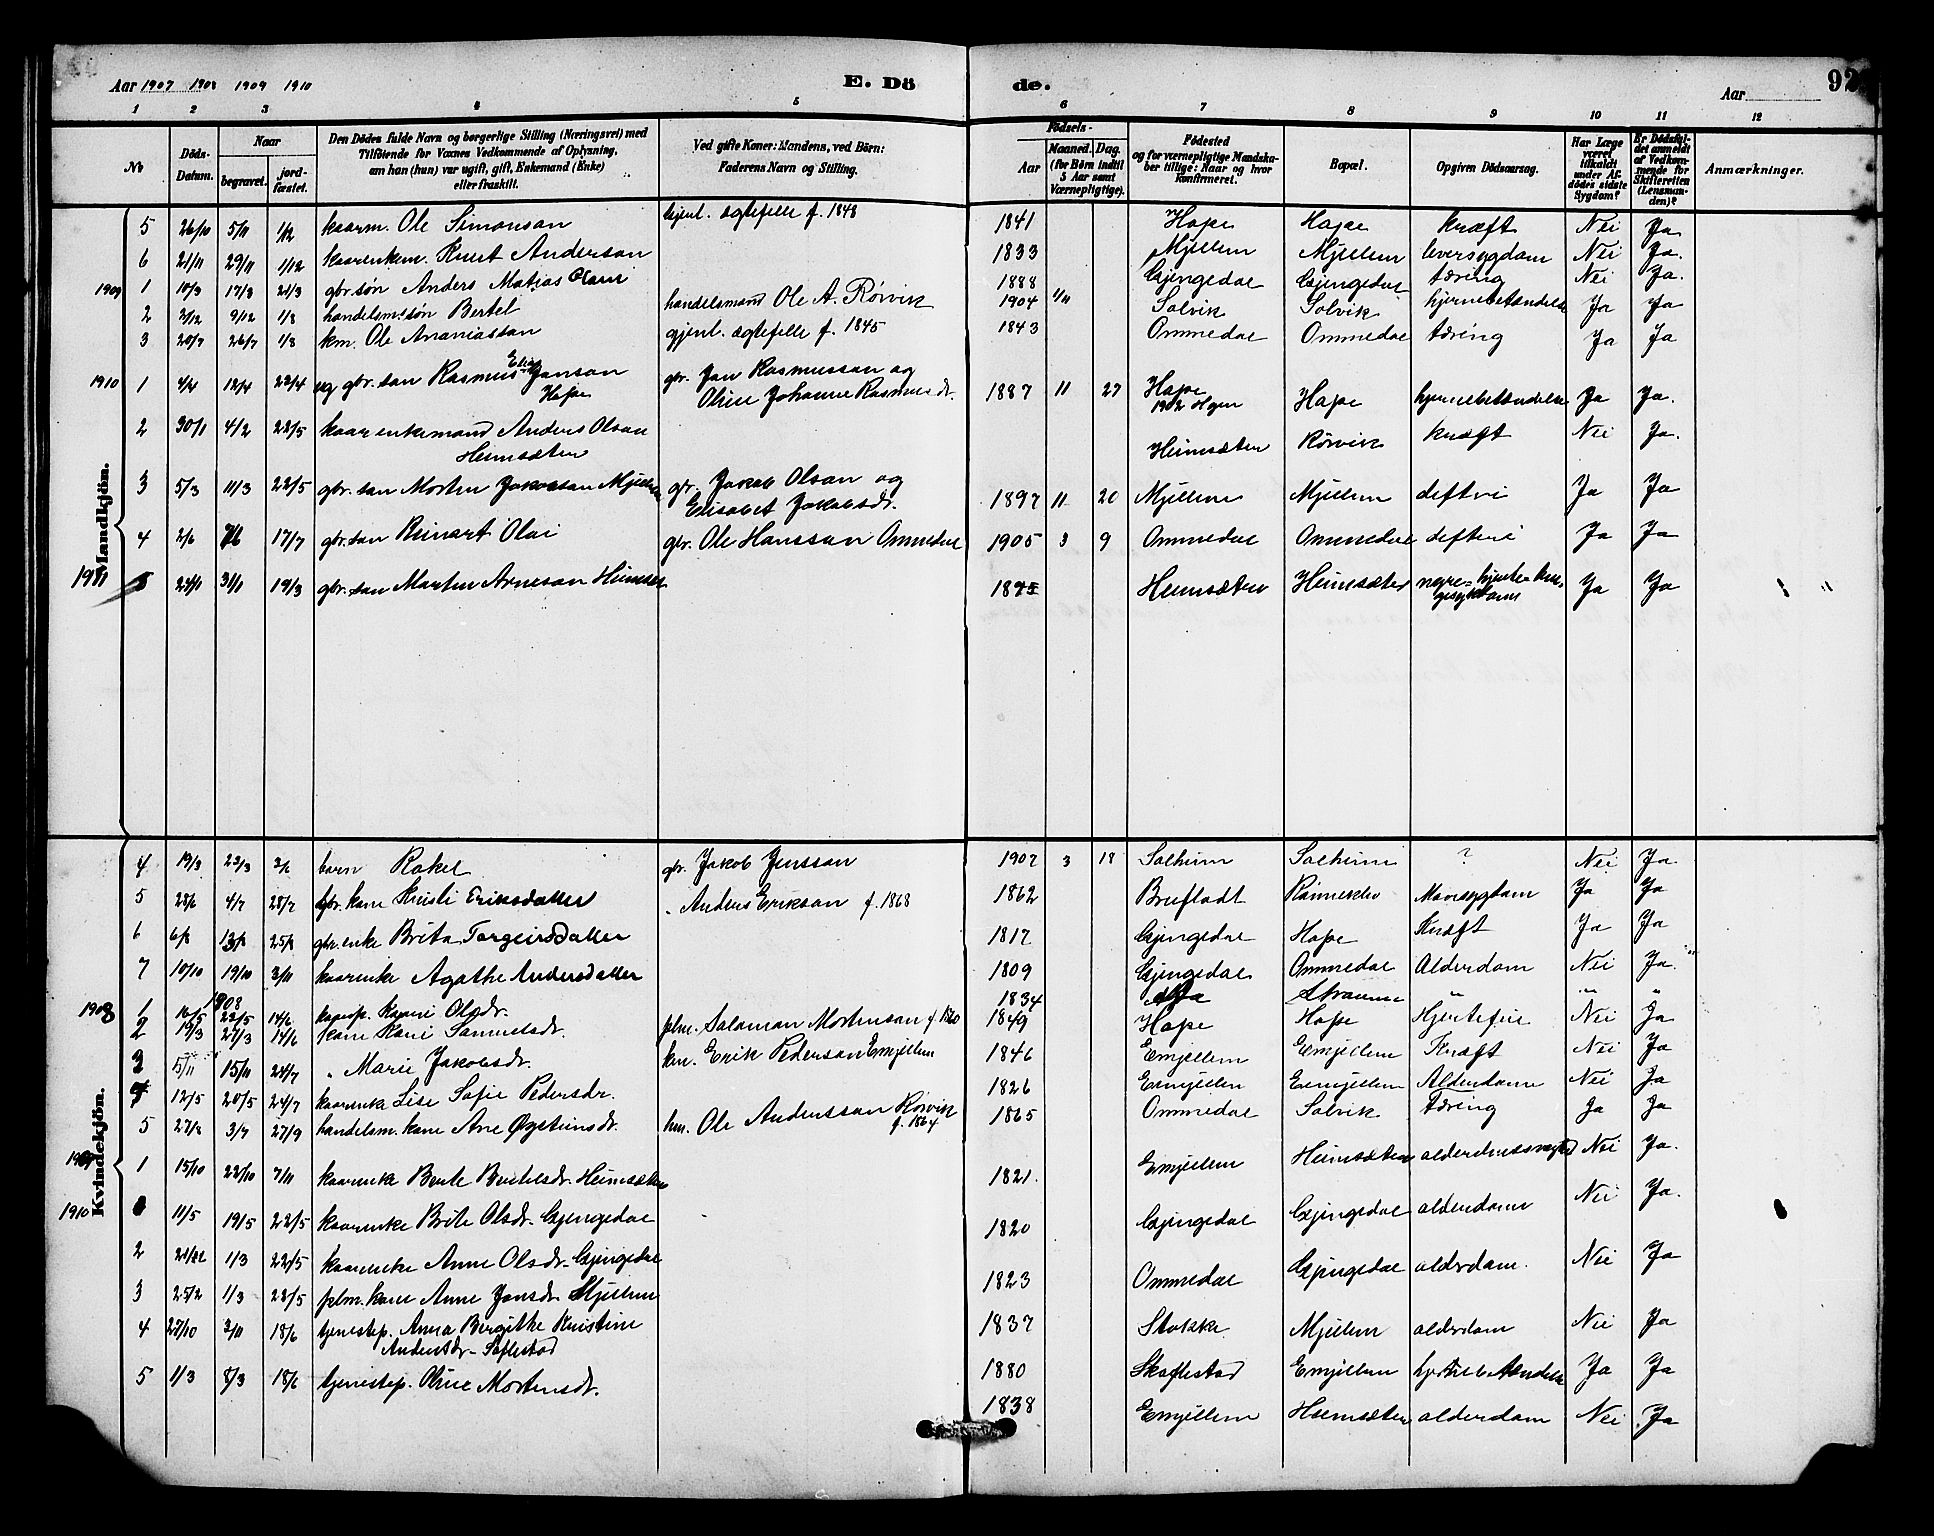 Aar 1907 1908 1909 1910 E. Dö de. Aar 92
1 2 3 4 5 6 7 8 9 10 11 12
No Döds-Datum. Naar begravet. jordfæstet. Den Dödes fulde Navn og borgerlige Stilling (Næringsvei) med Tilföiende for Voxnes Vedkommende af Oplysning, om han (hun) var ugift, gift, Enkemand (Enke) eller fraskilt. Ved gifte Koner: Mandens, ved Börn: Faderens Navn og Stilling. Födsels- Aar Maaned. Dag. (for Börn indtil 5 Aar samt Værnepligtige). Födested og for værnepligtige Mandskaber tillige: Naar og hvor Konfirmeret. Bopæl. Opgiven Dödsaarsag. Har Læge været tilkaldt under Afdödes sidste Sygdom? Er Dödsfaldet anmeldt af Vedkommende for Skifteretten (Lensmanden)? Anmærkninger.
Mandkjön.
5 26/10 5/11 1/12 kaarm. Ole Simonson gjenl. ægtefelle f. 1848 1841 Hope Hope kræft Nei Ja
6 21/11 29/11 1/12 kaarenkem. Knut Anderson 1833 Mjellem Mjellem leversygdom Nei Ja.
1909 1 10/3 17/3 21/3 gbr. søn Anders Matias Olani 1888 Gjengedal Gjengedal tæring Nei Ja.
2 3/12 9/12 1/8 handelsm. søn Bertel handelsmand Ole A. Rørvik 1904 1/11 Solvik Solvik hjernebetændelse Ja Ja
3 20/7 26/7 1/8 km. Ole Ananiassan gjenl. ægtefelle f. 1845 1843 Ommedal Ommedal tæring Ja Ja
1910 1 4/4 12/4 22/4 ug gbr. san Rasmus Elias Jansan Hope gbr. Jan Rasmussan og Oline Johanne Rasmusdr. 1887 11 27 Hope 1902 Hgen Hope hjernebetændelse Ja Ja.
2 30/1 4/2 22/5 kaarenkemand Anders Olsan Heimsæter Heimsæter Rørvik kræft Nei Ja.
3 5/3 11/3 22/5 gbr. san Morten Jakobsan Mjellem gbr. Jakob Olsan og Elisabet Jakobsdr. 1897 11 20 Mjellem Mjellem difteri Ja Ja
4 2/6 7/6 17/7 gbr. san Reinart Olai gbr. Ole Hanssan Ommedal 1905 3 9 Ommedal Ommedal difteri Ja Ja
1911 24/1 31/1 19/3 gbr. san Martin Arnesan Heimset 1895 Heimsæter Heimsæter nyre- hjerte- Ja Ja
Kvindekjön.
4 19/3 23/3 2/6 barn Rakel gbr. Jakob Jenssan 1907 3 18 Solheim Solheim ? Nei Ja.
5 28/6 4/7 28/7 gbr. kone Kristi Eriksdatter " Anders Eriksan f. 1868 1862 Brustadt Rønneklev Mavesygdom Ja Ja
6 6/8 13/8 25/8 gbr. enke Brita Torgeirsdatter 1817 Gjengedal Hope Kræft Ja Ja
7 10/10 19/10 3/11 kaarenke Agathe Andersdatter 1809 Gjengedal Ommedal Alderdom Nei Ja. "
1908 1 16/5 1908 22/5 14/6 Kari Olsdr. 1834 Straume " " "
2 19/3 27/3 14/6 kone Kari Samuelsdr. plm. Salaman Mortensan f. 1820 1849 Hope Hope Hjertefeil Nei Ja
3 5/11 15/11 24/7 " Marie Jakobsdr. km. Erik Pedersan Emjellem 1846 Emjellem Emjellem Kræft Nei Ja
4 12/5 20/5 24/7 kaarenke Lise Sofie Pedersdr. 1826 Emjellem Emjellem Alderdom Nei Ja
5 27/8 3/9 27/9 handelsm. kone Ane Øysteinsdr. hm. Ole Anderssan Rørvik f. 1864 1865 Ommedal Solvik Tæring Ja Ja
1909 1 15/10 22/10 7/11 kaarenke Berte Bertelsdr. Heimsæter 1821. Emjellem Heimsæter alderdomssvaghed Nei Ja.
1910 11/5 19/5 22/5 kaarenke Brite Olsdr. Gjengedal 1820 Gjengedal Gjengedal alderdom Nei Ja.
2 21/12 1/3 22/5 kaarenke Anne Olsdr. Gjengedal 1823 Ommedal Gjengedal alderdom. Nei Ja
3 25/2 1/3 22/5 plm. kone Anne Jansdr. Mjellem 1837 Stokke Mjellem alderdom Nei Ja
4 27/10 3/11 18/6 tjenestep. Anna Bergithe Kristine Andersdr. Saflestad 1880 Skaflestad Emjellem Ja Ja
5 1/3 8/3 18/6 tjenestep. Oline Mortensdr. 1838 Emjellem Heimsæter alderdom Nei Ja